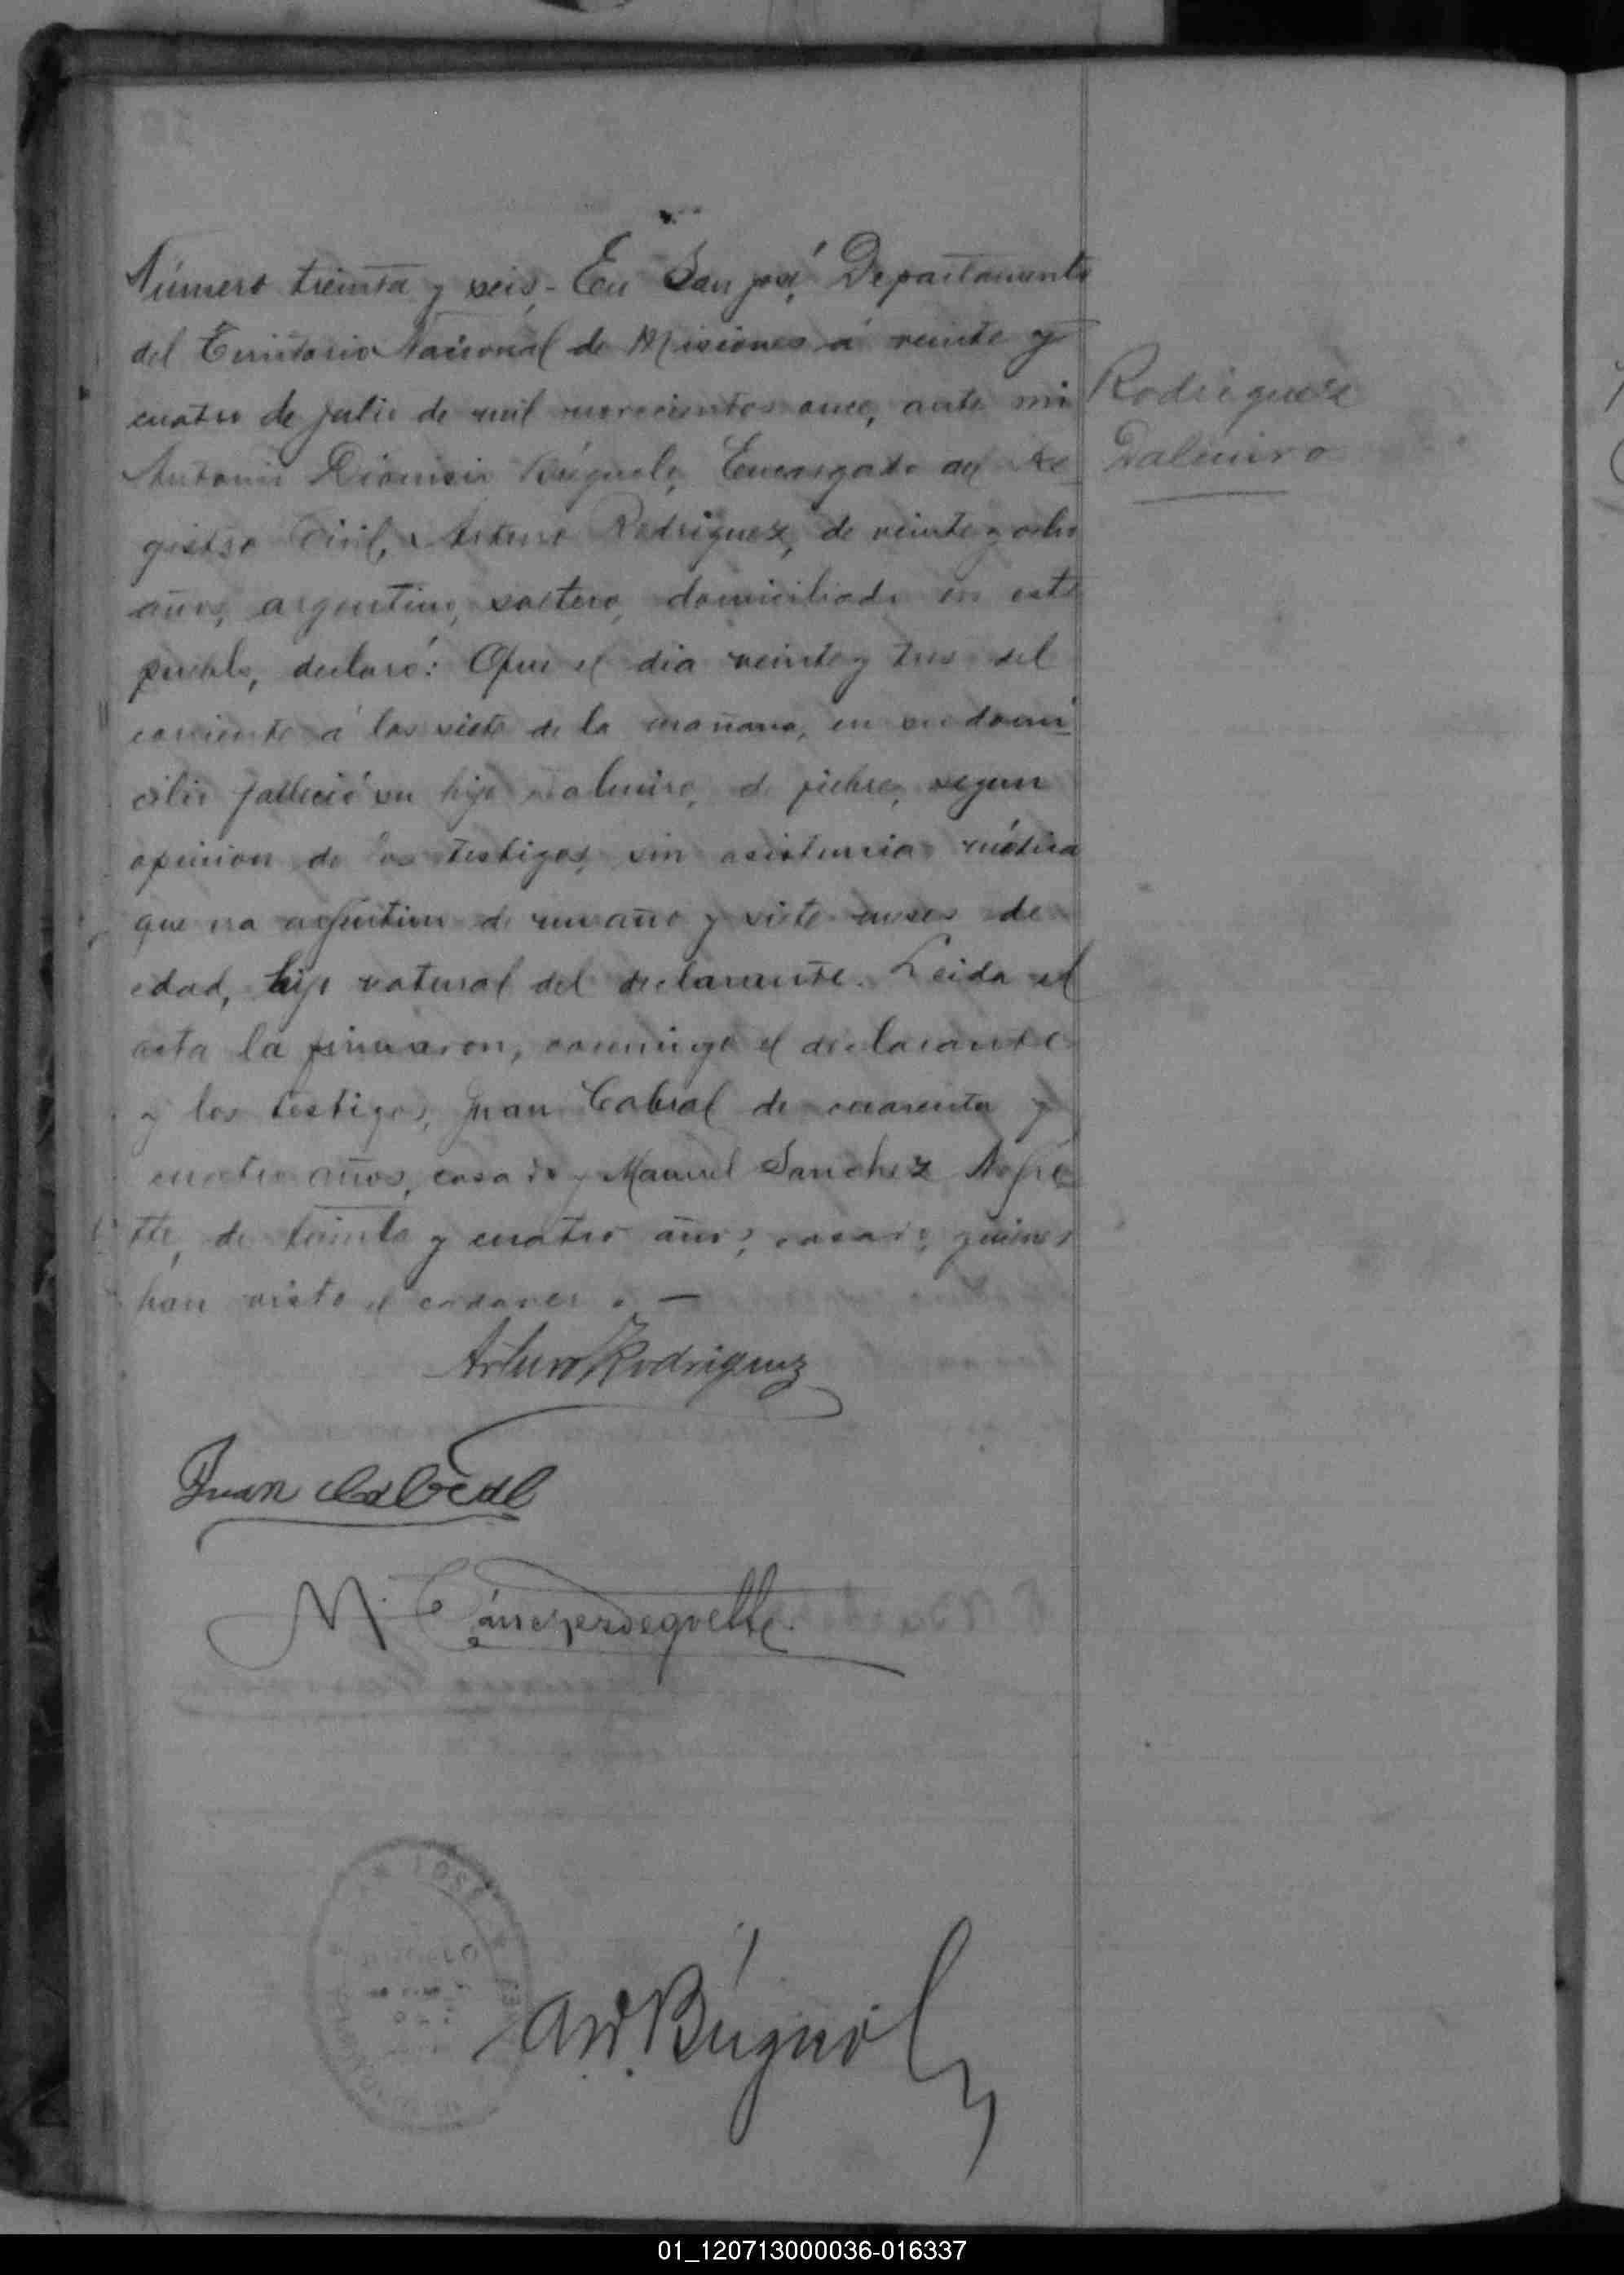 Número treinta y seis - En San José, Departamento
del Territorio Nacional de Misiones á veinte y
cuatro de julio de mil novecientos once, ante mi
Antonio Dionisio Búgnolo, Encargado del Re
gistro Civil, Arturo Rodriguez, de veinte y ocho
años, argentino, soltero, domiciliado en este
pueblo, declaró: Que el dia veinte y tres del
corriente á las siete de la mañana, en su domi
cilio falleció su hijo Dalmiro, de fiebre, segun
opinion de los testigos, sin asistencia médica
que era argentino de un año y siete meses de
edad, hijo natural del declarante. Leida el
acta la firmaron, conmigo el declarante
y los testigos, Juan Cabral de cuarenta y
cuatro años, casado y Manuel Sanchez
de treinta y cuatro años, casado, quienes
han visto el cadaver. —
Rodriguez
Dalmiro
Arturo Rodriguez
Juan Cabral
M.
A. D. Búgnol
JOSE
01_120713000036-016337